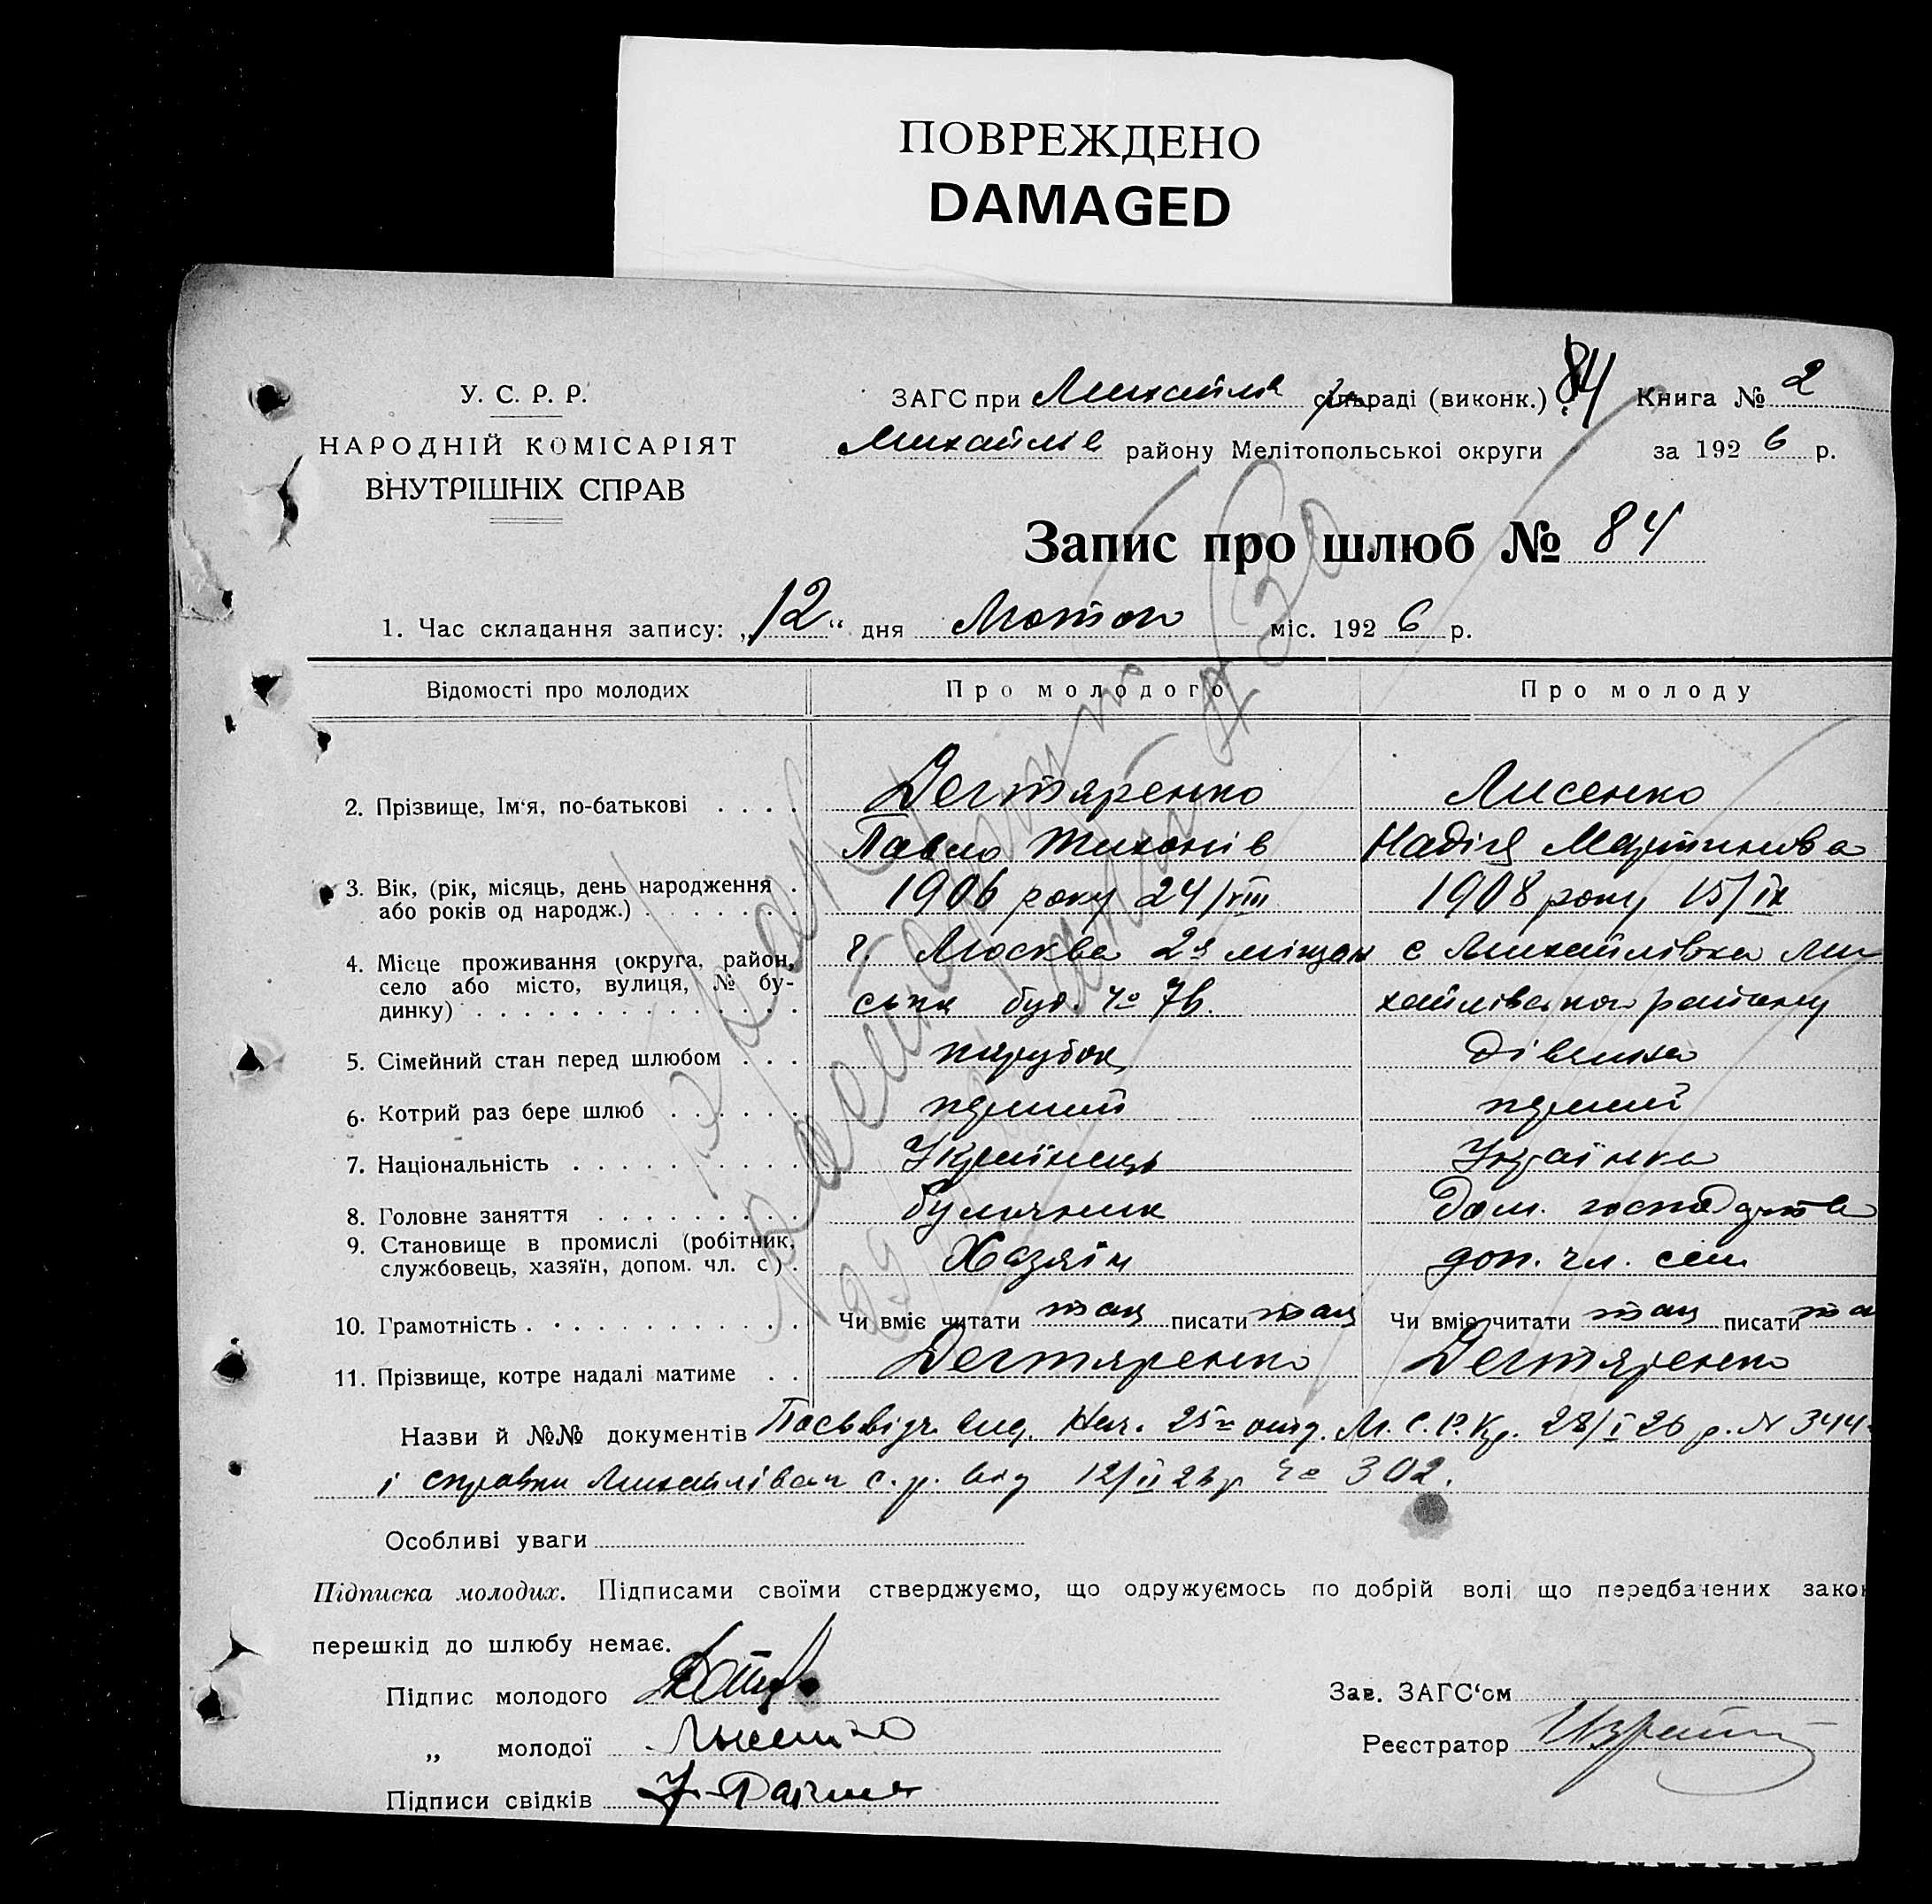 ПОВРЕЖДЕНО
DAMAGED
У. С. Р. Р.
НАРОДНІЙ КОМІСАРІЯТ
ВНУТРІШНІХ СПРАВ
ЗАГС при Михайлів сільраді (виконк.) 84 Книга № 2
Михайлів району Мелітопольської округи за 1926 р.
Запис про шлюб № 84
1. Час складання запису: „12“ дня Лютого міс. 1926 р.
Відомості про молодих Про молодого Про молоду
2. Прізвище, Ім‘я, по-батькові Дегтяренко Лисенко
Павло Тихонів Надія Мартинова
3. Вік, (рік, місяць, день народження або років од народж.) 1906 року 24/VIII 1908 року 15/IX
4. Місце проживання (округа, район, г. Москва 2я міщан с Михайлівка Ми
село або місто, вулиця, № бу- ська буд. № 7в. хайлівського району
динку)
5. Сімейний стан перед шлюбом парубок дівчина
6. Котрий раз бере шлюб перший перший
7. Національність Українець Українка
8. Головне заняття булочник Дом. господарства
9. Становище в промислі (робітник, службовець, хазяїн, допом. чл. с) Хазяїн доп. чл. сем
10. Грамотність Чи вміє читати так писати так Чи вміє читати так писати та
11. Прізвище, котре надалі матиме Дегтяренко Дегтяренко
Назви й №№ документів Посьвідч. вид. Нач. 25го отд. М. С. Р. Кр. 28/I 26 р. N 344
і справки Михайлівськ с. р. від 12/II 26 р № 302.
Особливі уваги
Підписка молодих. Підписами своїми стверджуємо, що одружуємось по добрій волі що передбачених закон
перешкід до шлюбу немає.
Підпис молодого
Зав. ЗАГС‘ом
„ молодої Лисенко
Реєстратор
Підписи свідків